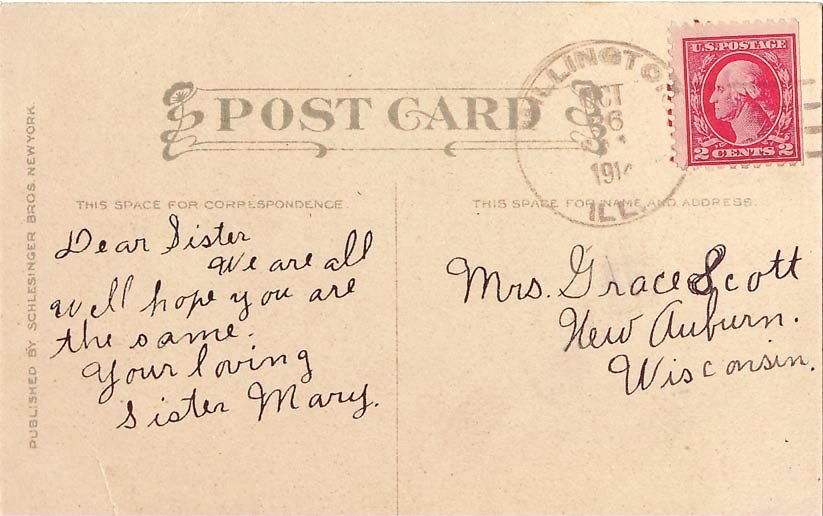 U.S. POSTAGE
2 CENTS 2
OCT
6
ILL.
POST CARD
THIS SPACE FOR CORRESPONDENCE.
THIS SPACE FOR NAME AND ADDRESS.
PUBLISHED BY SCHLESINGER BROS. NEW YORK.
Dear Sister
We are all
well hope you are
the same.
Your loving
Sister Mary.
Mrs. Grace Scott
New Auburn.
Wisconsin.